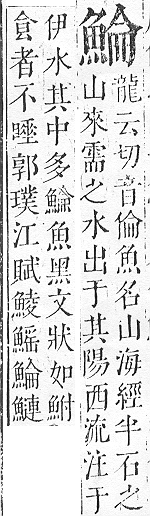 鯩
瀧云切音倫魚名山海經半石之
山來需之水出于其陽西流注于
伊水其中多鯩魚黑文狀如鮒
食者不睡郭璞江賦鯪鰩鯩鰱